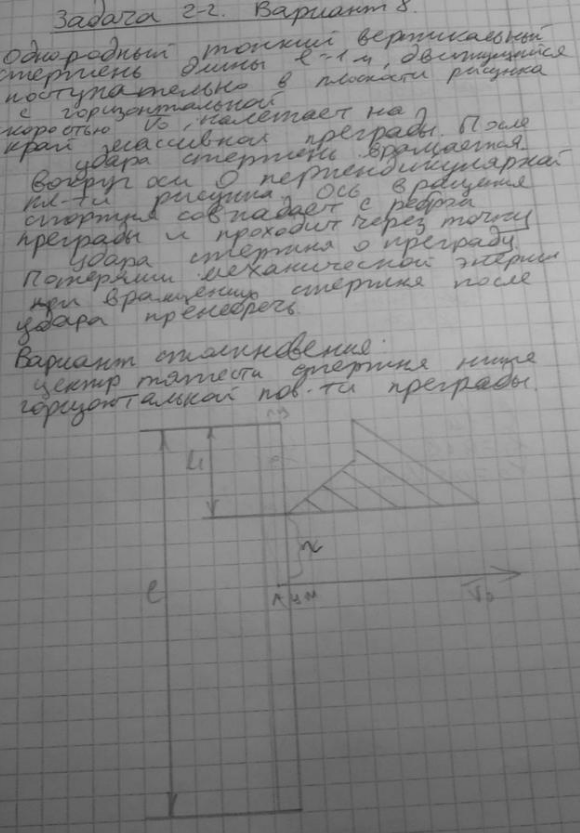 Задача 2-2. Вариант 8.
Однородный тонкий вертикальный
стержень длины l=1 м, движущийся
поступательно в плоскости рисунка
с горизонтальной
скоростью V₀, налетает на
край массивной преграды. После
удара стержень вращается
вокруг оси O перпендикулярной
пл-ти рисунка. Ось вращения
стержня совпадает с ребром
преграды и проходит через точку
удара стержня о преграду.
Потерями механической энергии
при вращении стержня после
удара пренебречь.
Вариант столкновения:
центр тяжести стержня ниже
горизонтальной пов-ти преграды.
l
x
V₀